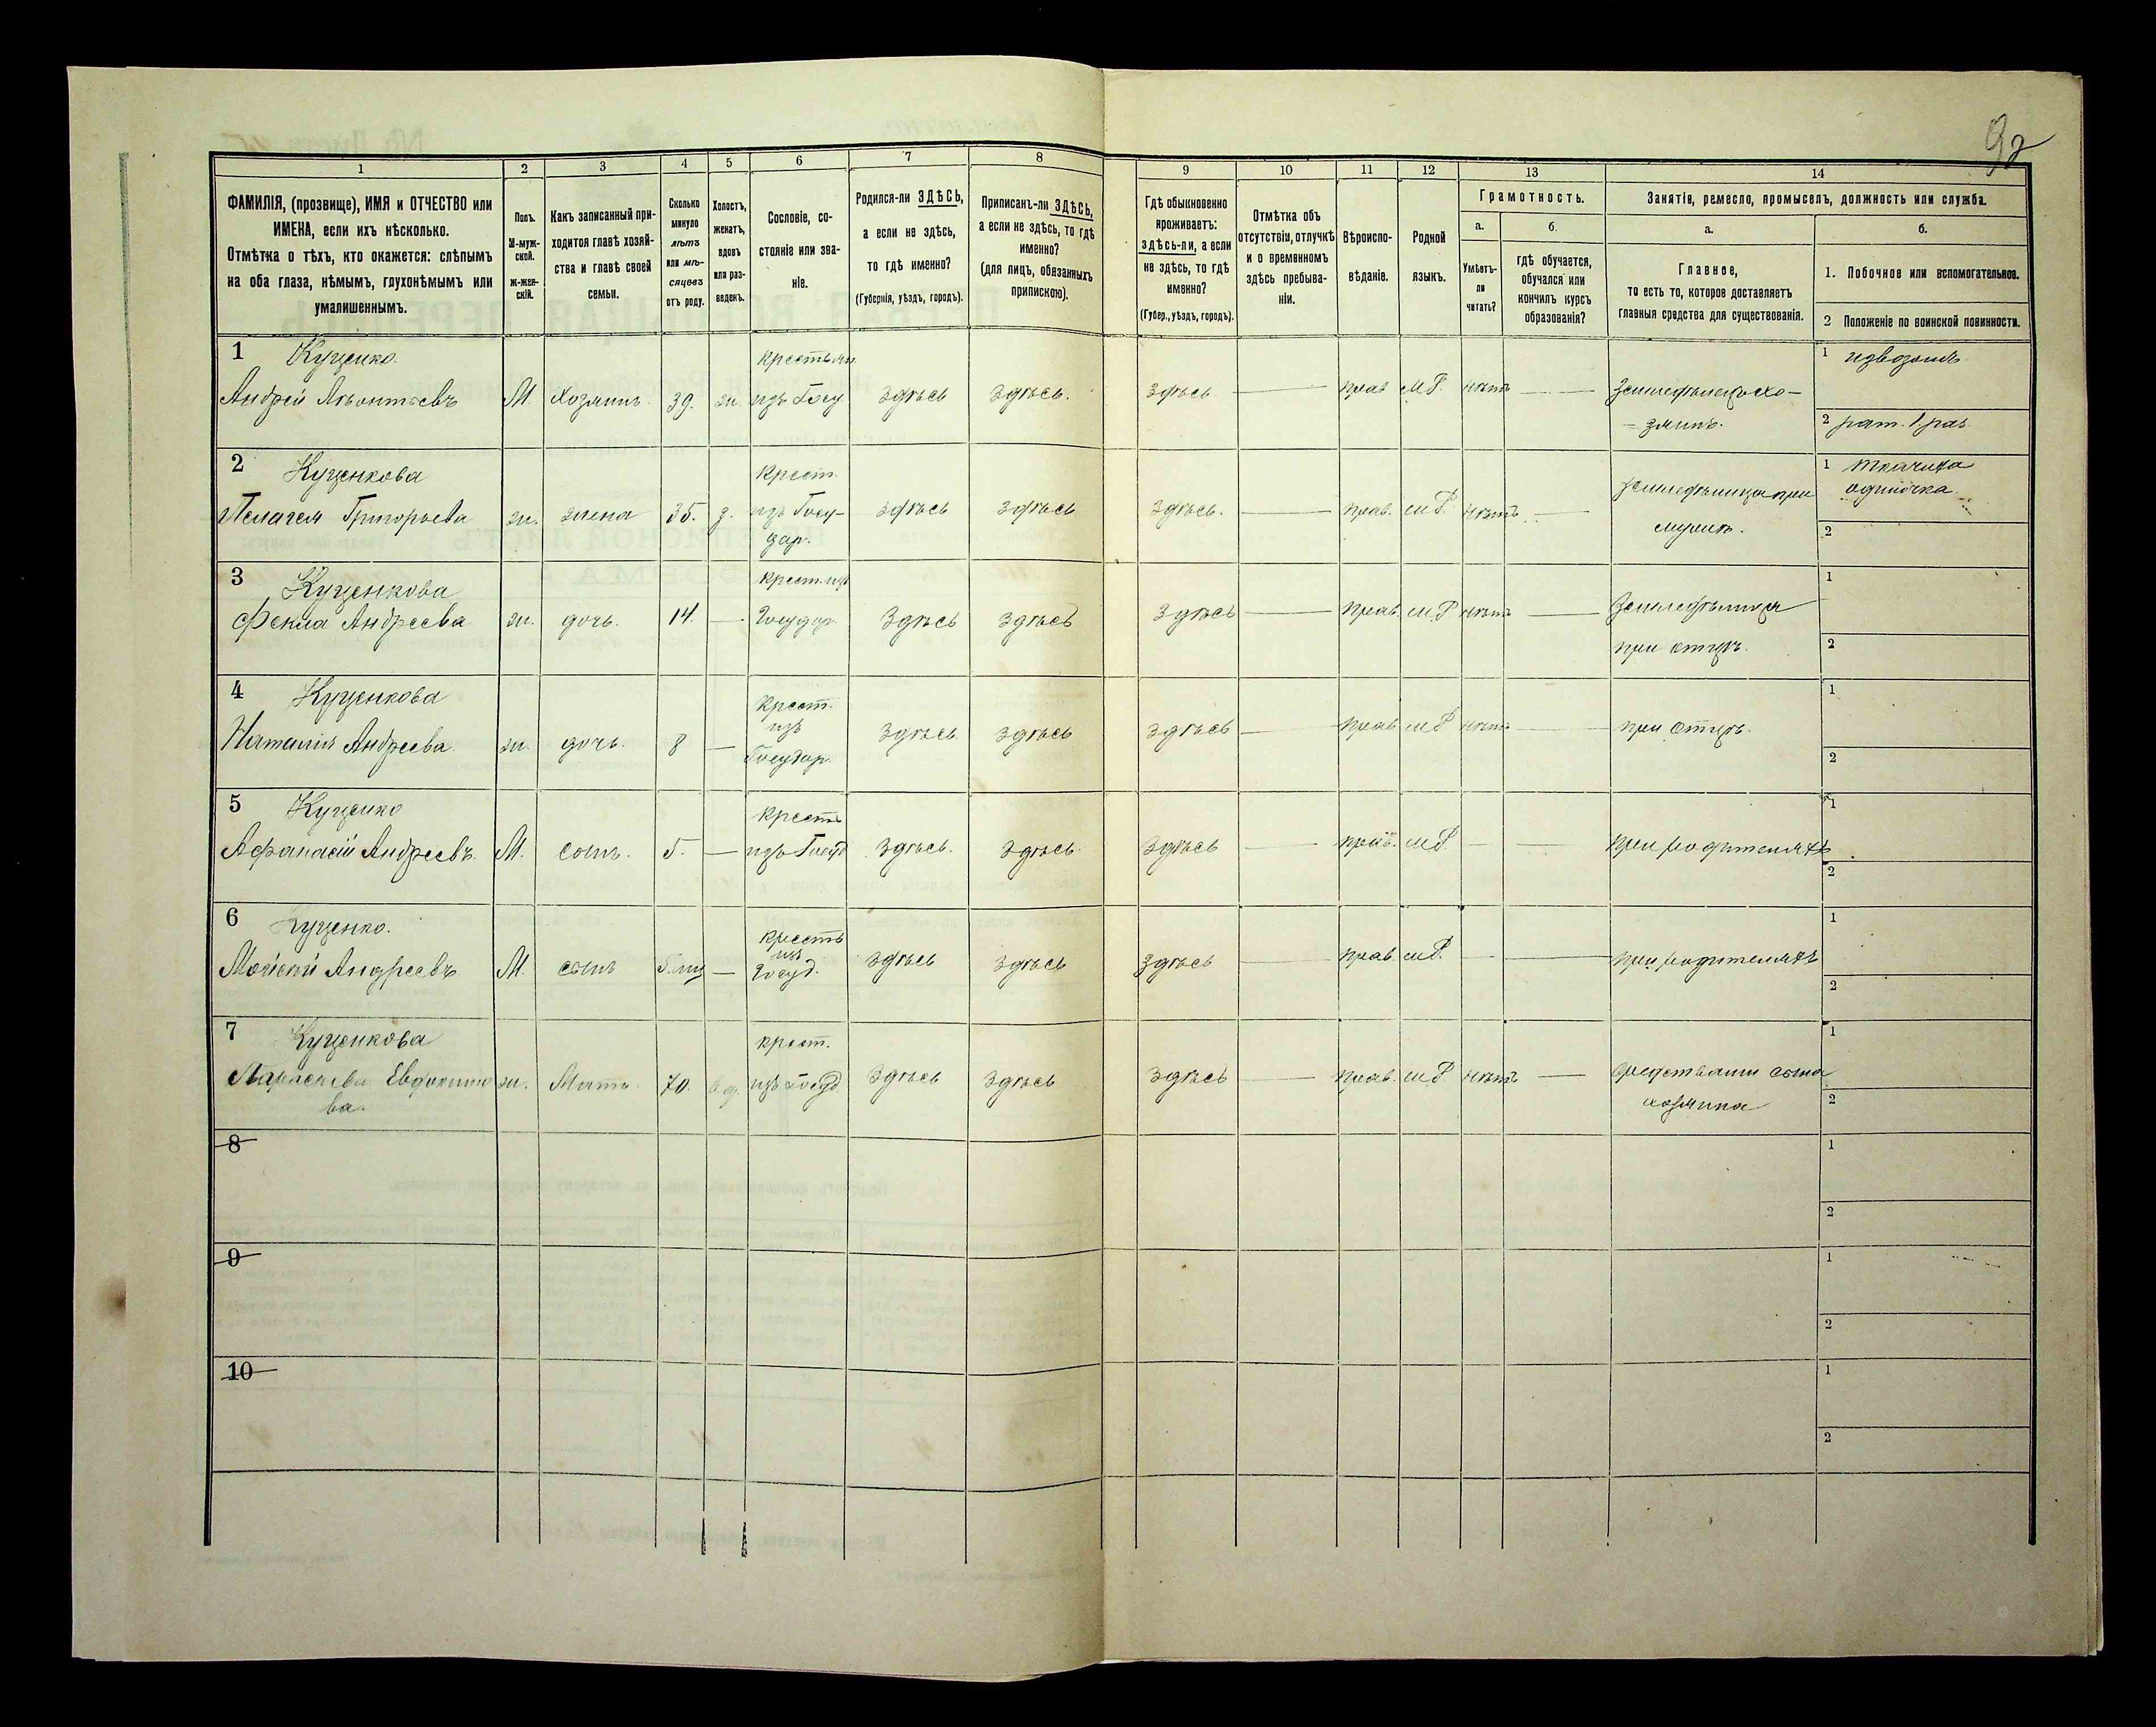 92
1 2 3 4 5 6 7 8 9 10 11 12 13 14
ФАМИЛІЯ, (прозвище), ИМЯ и ОТЧЕСТВО или
ИМЕНА, если ихъ нѣсколько.
Отмѣтка о тѣхъ, кто окажется: слѣпымъ
на оба глаза, нѣмымъ, глухонѣмымъ или
умалишеннымъ.
Полъ.
М-муж-
ской.
ж-жен-
скій.
Какъ записанный при-
ходится главѣ хозяй-
ства и главѣ своей
семьи.
Сколько
минуло
лѣтъ
или мѣ-
сяцевъ
отъ роду.
Холостъ,
женатъ,
вдовъ
или раз-
веденъ.
Сословіе, со-
стояніе или зва-
ніе.
Родился-ли ЗДѢСЬ,
а если не здѣсь,
то гдѣ именно?
(Губернія, уѣздъ, городъ).
Приписанъ-ли ЗДѢСЬ,
а если не здѣсь, то гдѣ
именно?
(для лицъ, обязанныхъ
припискою).
Гдѣ обыкновенно
проживаетъ:
здѣсь-ли, а если
не здѣсь, то гдѣ
именно?
(Губер., уѣздъ, городъ).
Отмѣтка объ
отсутствіи, отлучкѣ
и о временномъ
здѣсь пребыва-
ніи.
Вѣроиспо-
вѣданіе.
Родной
языкъ.
Грамотность.
а.
Умѣетъ-
ли
читать?
б.
гдѣ обучается,
обучался или
кончилъ курсъ
образованія?
Занятіе, ремесло, промыселъ, должность или служба.
а.
Главное,
то есть то, которое доставляетъ
главныя средства для существованія.
б.
1. Побочное или вспомогательное.
2 Положеніе по воинской повинности.
1 Куценко. крестьян 1 извозомъ
Андрей Леонтьевъ М. Хозяинъ 39. ж. изъ Госу здѣсь здѣсь. здѣсь — прав. М.Р. нѣтъ — Земледѣлецъ хо-
зяинъ. 2 рат. 1 раз.
2 Куценкова Крест. 1 ткачиха
Пелагея Григорьева ж. жена 35. з. изъ Госу- здѣсь здѣсь здѣсь. — прав. м.Р. нѣтъ — земледѣлица при одиночка
дар. мужѣ. 2
3 Куценкова крест. изъ 1
Фекла Андреева ж. дочь. 14. — Государ. Здѣсь здѣсь здѣсь — прав. м.Р нѣтъ — Земледѣлица
при отцѣ. 2
4 Куценкова Крест. 1
изъ
Наталія Андреева. ж. дочь. 8 — Государ. здѣсь здѣсь здѣсь — прав. м.Р нѣтъ — при отцѣ.
2
5 Куценко крестъ 1
Афанасій Андреевъ. М. сынъ. 5. — изъ Госуд здѣсь. здѣсь. здѣсь — прав. м.Р. — — при родителяхъ
2
6 Куценко. крестъ 1
изъ
Мойсей Андреевъ М. сынъ 5.мц — Госуд. здѣсь здѣсь здѣсь — прав. м.Р. — — при родителяхъ
2
7 Куценкова крест. 1
Параскева Евфимо ж. Мать 70. вд. изъ Госуд здѣсь здѣсь здѣсь — прав. м.Р нѣтъ — средствами сына
ва. хозяина 2
8 1
2
9 1
2
10 1
2